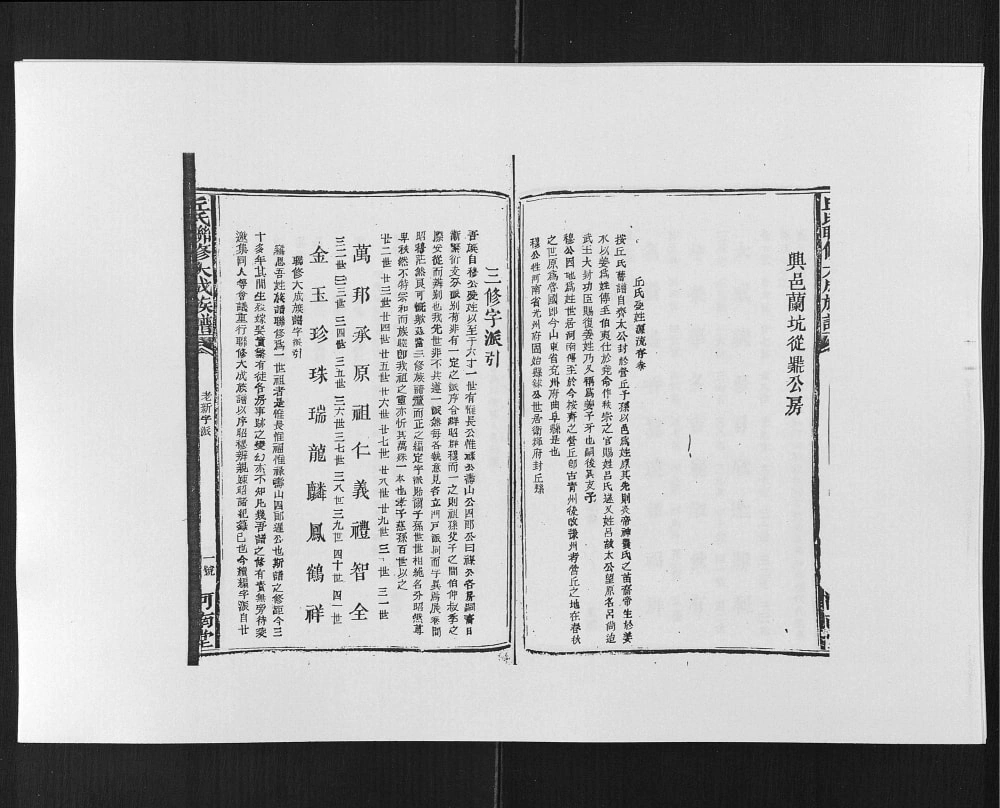 興邑蘭坑從鼎公房
丘氏受姓源流考
按丘氏舊譜自齊太公封於營丘子孫以邑為姓原其先則炎帝神農氏之苗裔帝生於姜
水以姜為姓傳至伯夷仕於堯命作秩宗之官賜姓呂氏遂又姓呂故太公望原名呂尚迨
武王大封功臣賜復姜姓乃又稱為姜子牙也嗣後其支子
穆公因地為姓世居河南傳至於今按齊之營丘即古青州後改謙州考營丘之地在春秋
之世原為魯國即今山東省兗州府曲阜縣是也
穆公牲河南省光州府固始縣公世居衛輝府封丘縣
三修字派引
吾族自穆公受姓以至于六十一世有惟長公惟祿公壽山公四郎公曰祿公各房嗣裔日
漸繁衍支分派別有非有一定之派序合群昭群穆而一之則祖孫父子之間伯仲叔季之
際安從而辨別也我先世非不共遵一派然每各執意見各立門戶派同而字異為展卷間
昭穆茫然良可慨歟茲當三修族譜釐而正之編定字派貽爾子孫世世相繩名分昭然尊
卑秩然不特宗和而族睦即我祖之靈亦忻其萬殊一本也孝子慈孫百世以之
廿二世 廿三世 廿四世 廿五世 廿六世 廿七世 廿八世 廿九世 三十世 三一世
萬邦承原祖仁義禮智全
三二世 三三世 三四世 三五世 三六世 三七世 三八世 三九世 四十世 四一世
金玉珍珠瑞龍麟鳳鶴祥
聯修大成族譜字派引
竊思吾姓族譜聯修為一世祖者是惟長惟福惟祿壽山四郎遲公也斯譜之修距今三
十多年其間生殁嫁娶實繁有徒各房事跡之變幻亦不知凡幾吾譜之修有責無旁待爰
邀集同人等會議重行聯修大成族譜以序昭穆辨親疎昭諸紀錄已也今續編字派自廿
丘氏聯修大成族譜
老新字派
一號
河南堂